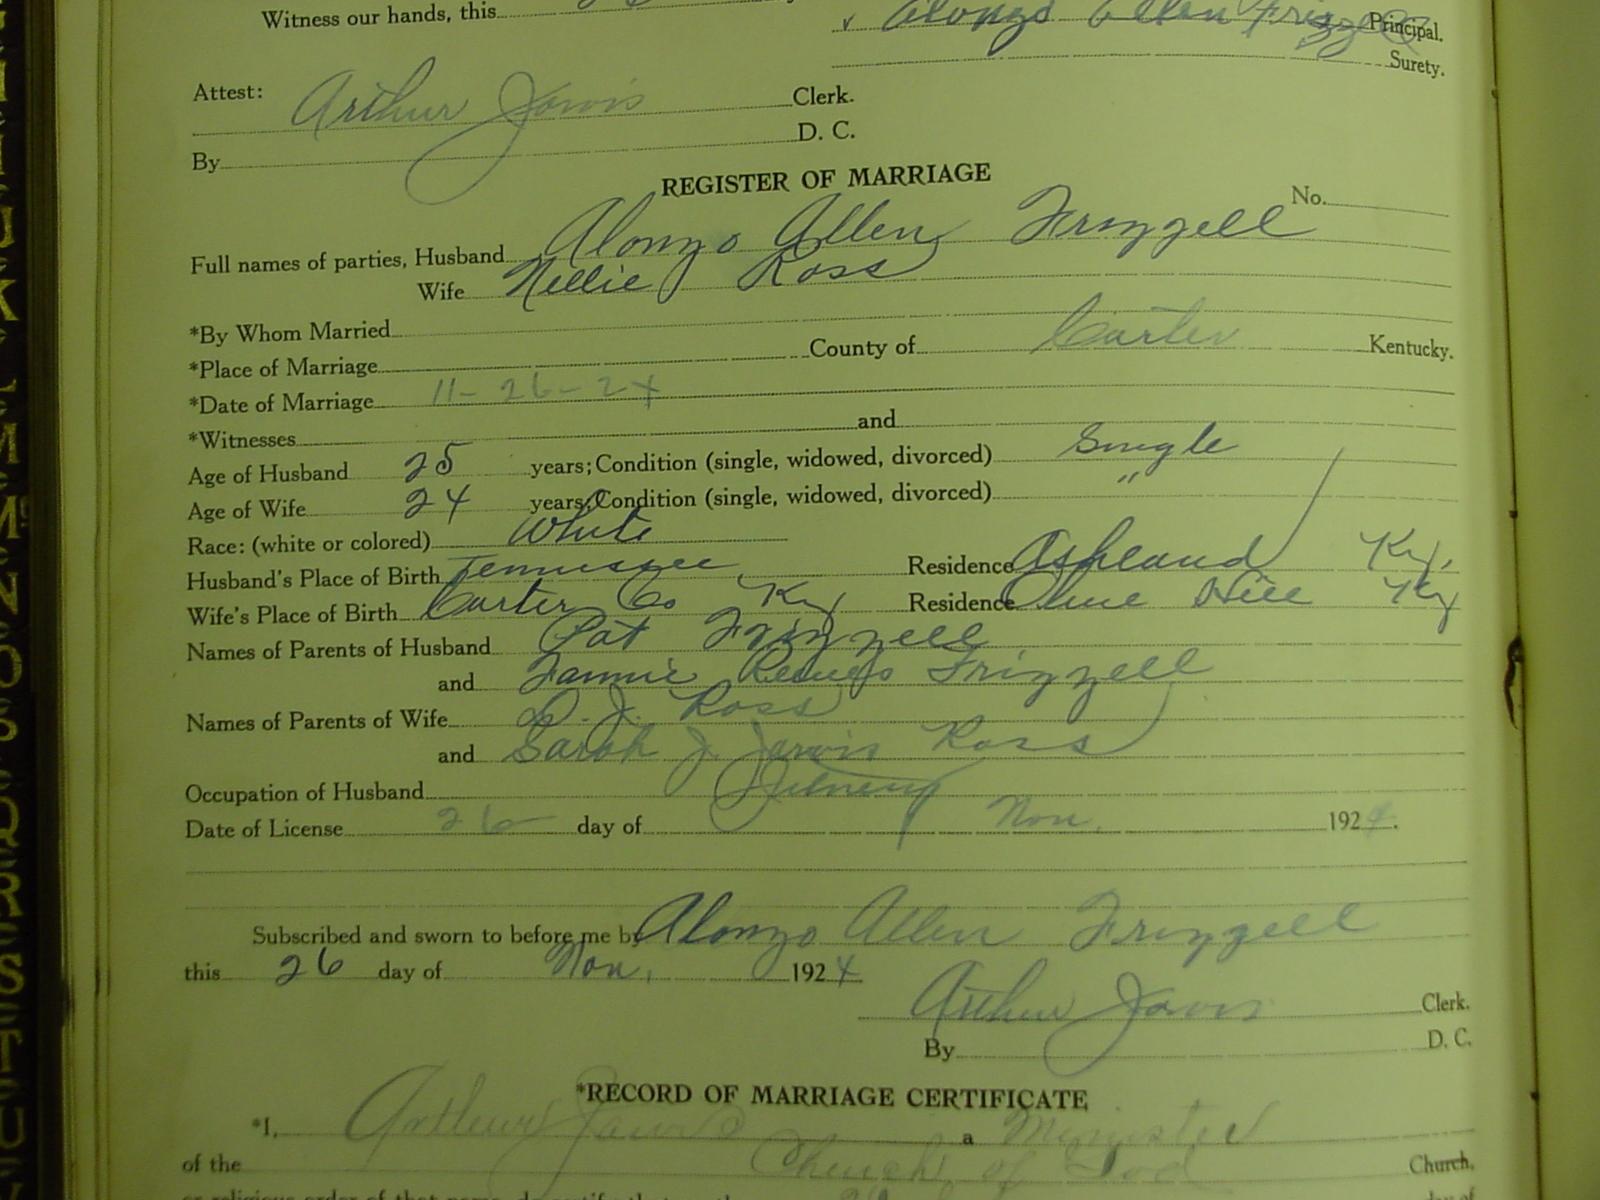 Witness our hands, this
Alonzo Allen Frizzell Principal.
Surety.
Attest: Arthur Jarvis Clerk.
D. C.
By
REGISTER OF MARRIAGE
No.
Full names of parties, Husband Alonzo Allen Frizzell
Wife Nellie Ross
*By Whom Married
*Place of Marriage County of Carter Kentucky.
*Date of Marriage 11-26-24
*Witnesses and
Age of Husband 25 years; Condition (single, widowed, divorced) Single
Age of Wife 24 years; Condition (single, widowed, divorced) "
Race: (white or colored) White
Husband's Place of Birth Tennessee Residence Ashland Ky.
Wife's Place of Birth Carter Co Ky Residence Olive Hill Ky
Names of Parents of Husband Pat Frizzell
and Fannie Frizzell
Names of Parents of Wife D. J. Ross
and Sarah J. Jarvis Ross
Occupation of Husband
Date of License 26 day of Nov. 1924.
Subscribed and sworn to before me by Alonzo Allen Frizzell
this 26 day of Nov. 1924
Arthur Jarvis Clerk.
By D. C.
*RECORD OF MARRIAGE CERTIFICATE
*I, Arthur Jarvis a Minister
of the Church of God Church.
or religious order of that name, do certify that on the 26 day of